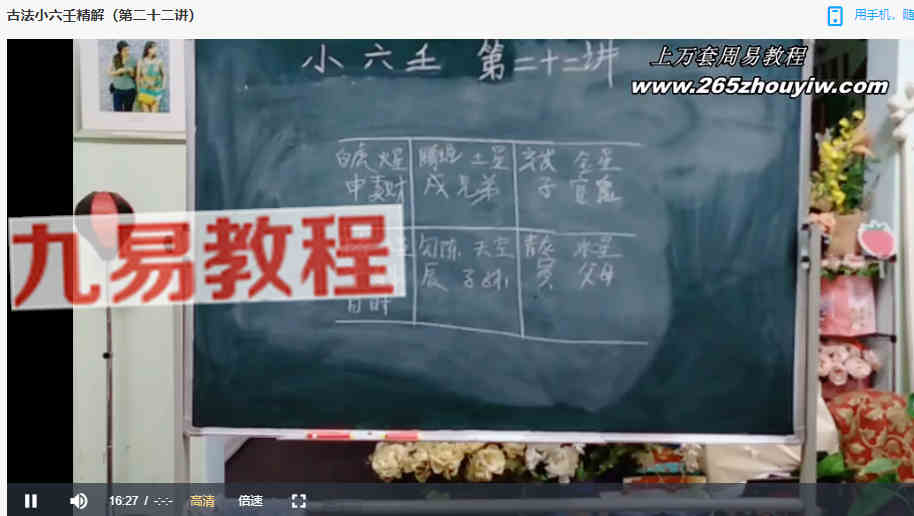 古法小六壬精解（第二十二讲）
用手机，随
小六壬 第二十二讲
上万套周易教程
www.265zhouyiw.com
白虎 火星 腾蛇 土星 玄武 金星
申妻财 戌兄弟 子官鬼
九易教程
勾陈 天空 青龙 水星
辰 子孙 寅 父母
16:27 / -:-:-
高清
倍速